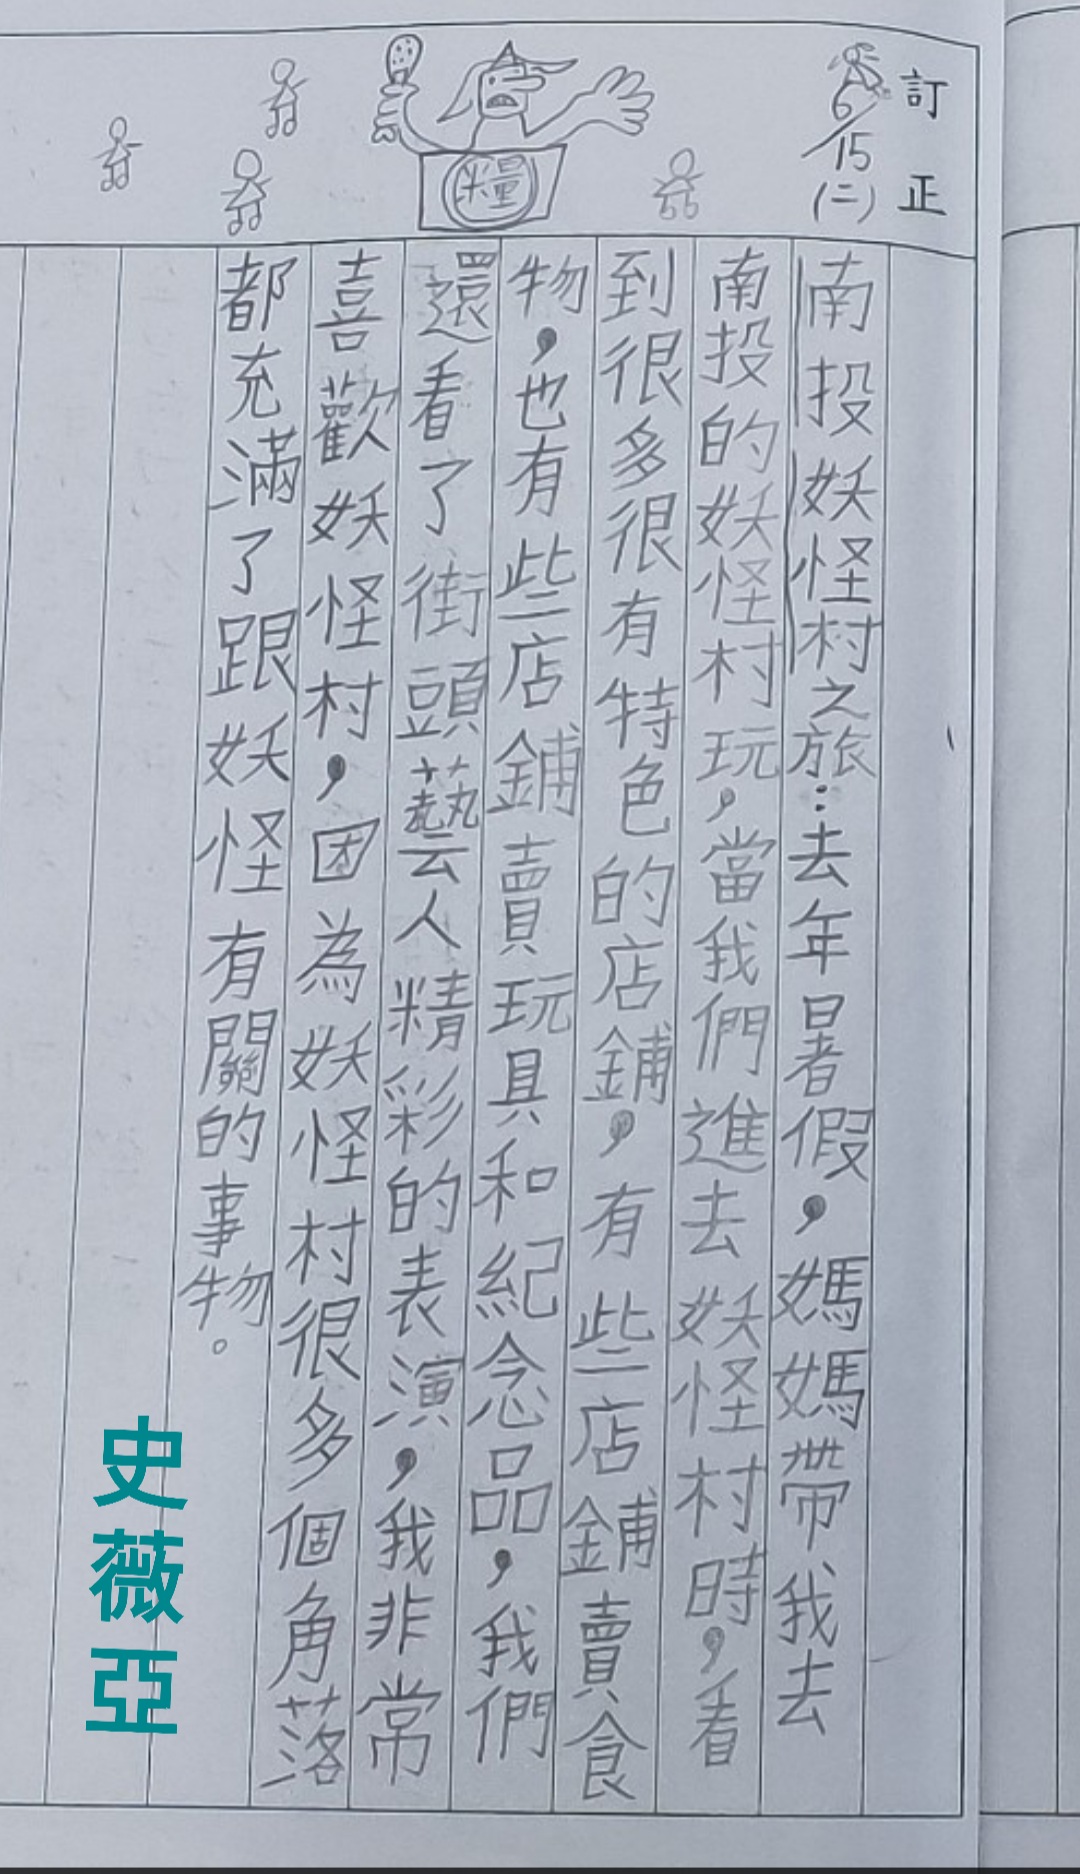 訂正
6/15(二)
糧
南投妖怪村之旅：去年暑假，媽媽帶我去
南投的妖怪村玩，當我們進去妖怪村時，看
到很多很有特色的店鋪，有些店鋪賣食
物，也有些店鋪賣玩具和紀念品，我們
還看了街頭藝人精彩的表演，我非常
喜歡妖怪村，因為妖怪村很多個角落
都充滿了跟妖怪有關的事物。
史薇亞